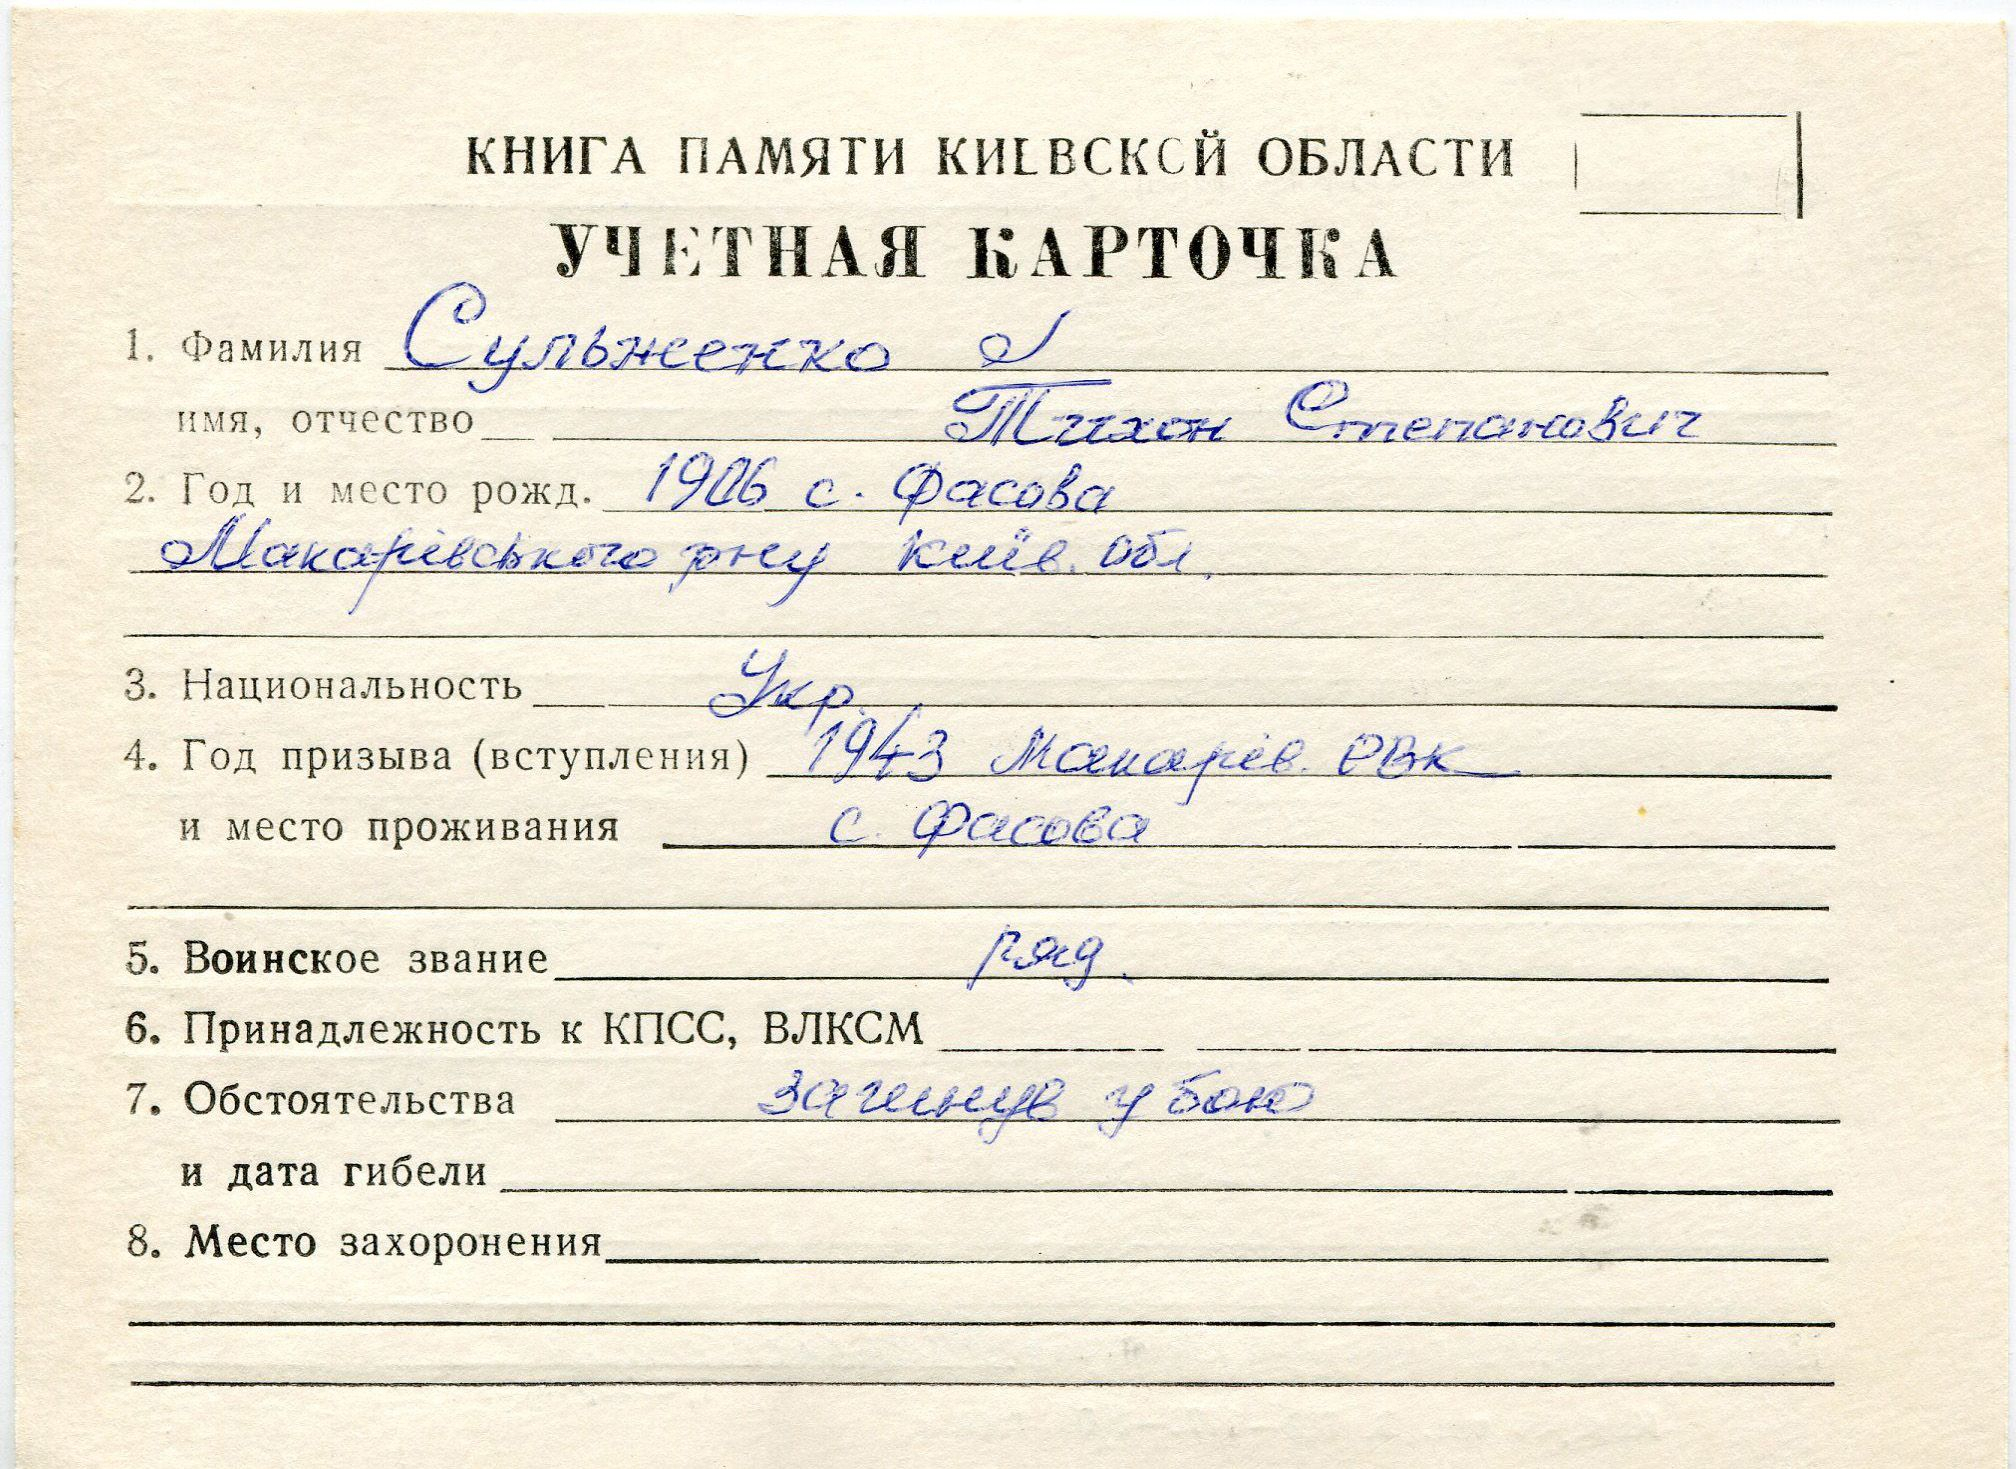 КНИГА ПАМЯТИ КИЕВСКОЙ ОБЛАСТИ
УЧЕТНАЯ КАРТОЧКА
1. Фамилия Сульженко
имя, отчество Тихон Степанович
2. Год и место рожд. 1906 с. Фасова
Макарівського рну Київ. обл.
3. Национальность Укр.
4. Год призыва (вступления) 1943 Макарів. РВК
и место проживания с. Фасова
5. Воинское звание ряд.
6. Принадлежность к КПСС, ВЛКСМ
7. Обстоятельства загинув у бою
и дата гибели
8. Место захоронения